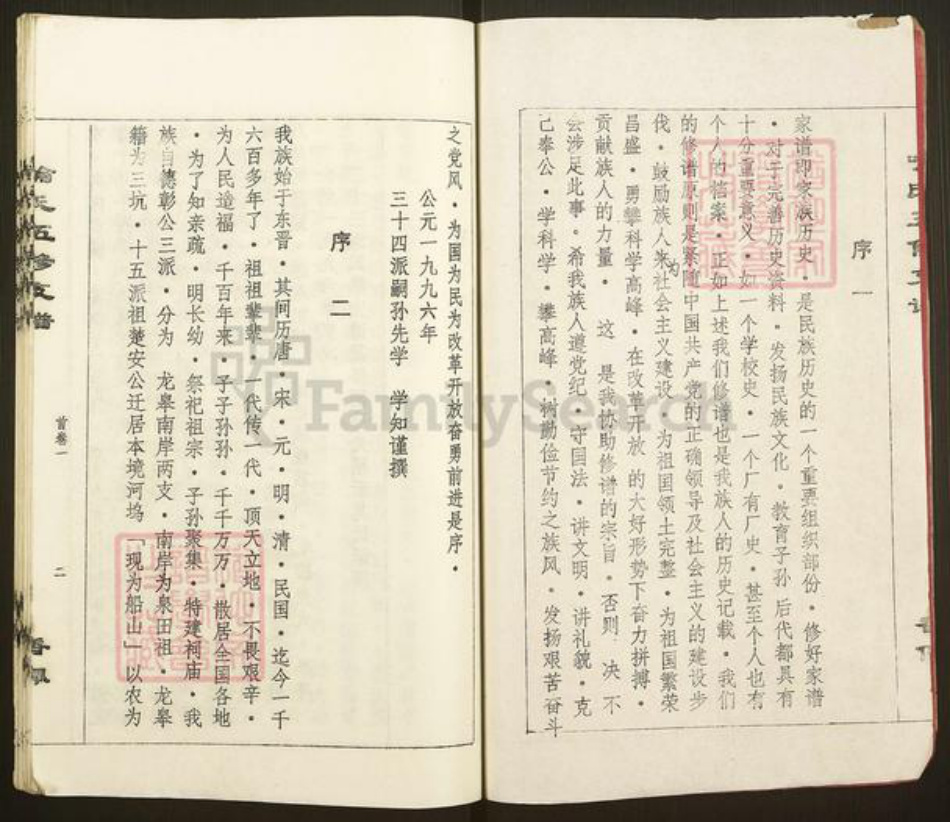 序一
家谱即家族历史·是民族历史的一个重要组织部份·修好家谱
·对于完善历史资料·发扬民族文化·教育子孙后代都具有
十分重要意义·如一个学校史·一个厂有厂史·甚至个人也有
个人的档案·正如上述我们修谱也是我族人的历史记载·我们
的修谱原则是紧随中国共产党的正确领导及社会主义的建设步
伐·鼓励族人为社会主义建设·为祖国领土完整·为祖国繁荣
昌盛·勇攀科学高峰·在改革开放的大好形势下奋力拼搏·
贡献族人的力量·这是我协助修谱的宗旨·否则决不
会涉足此事。希我族人遵党纪·守国法·讲文明·讲礼貌·克
己奉公·学科学·攀高峰·树勤俭节约之族风·发扬艰苦奋斗
之党风·为国为民为改革开放奋勇前进是序·
公元一九九六年
三十四派嗣孙先学 学知谨撰
序二
我族始于东晋·其间历唐·宋·元·明·清·民国·迄今一千
六百多年了·祖祖辈辈·一代传一代·顶天立地·不畏艰辛·
为人民造福·千百年来·子子孙孙·千千万万·散居全国各地
·为了知亲疏·明长幼·祭祀祖宗·子孙聚集·特建祠庙·我
族自德彰公三派·分为 龙皋南岸两支·南岸为泉田祖·龙皋
籍为三坑·十五派祖楚安公迁居本境河坞「现为船山」以农为
首卷一
二
氏五修支谱
FamilySearch